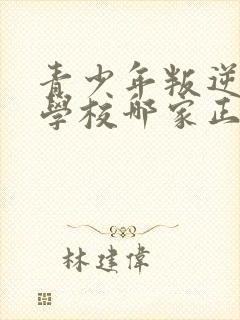 青少年叛逆
學校哪家正
林建偉